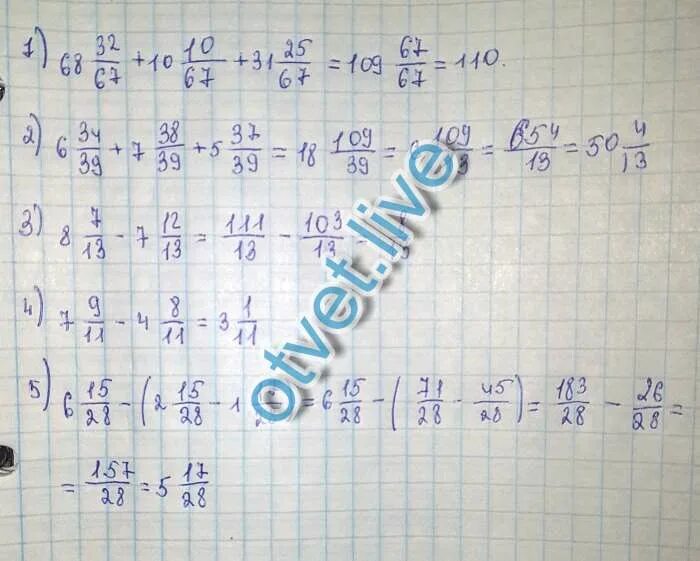 1) 68 32/67 + 10 10/67 + 31 25/67 = 109 67/67 = 110.
2) 6 34/39 + 7 38/39 + 5 37/39 = 18 109/39 = 109/13 = 654/13 = 50 4/13
3) 8 7/13 - 7 12/13 = 111/13 - 103/13 =
4) 7 9/11 - 4 8/11 = 3 1/11
5) 6 15/28 - (2 15/28 - 1 = 6 15/28 - (71/28 - 45/28) = 183/28 - 26/28 =
= 157/28 = 5 17/28
otvet.live